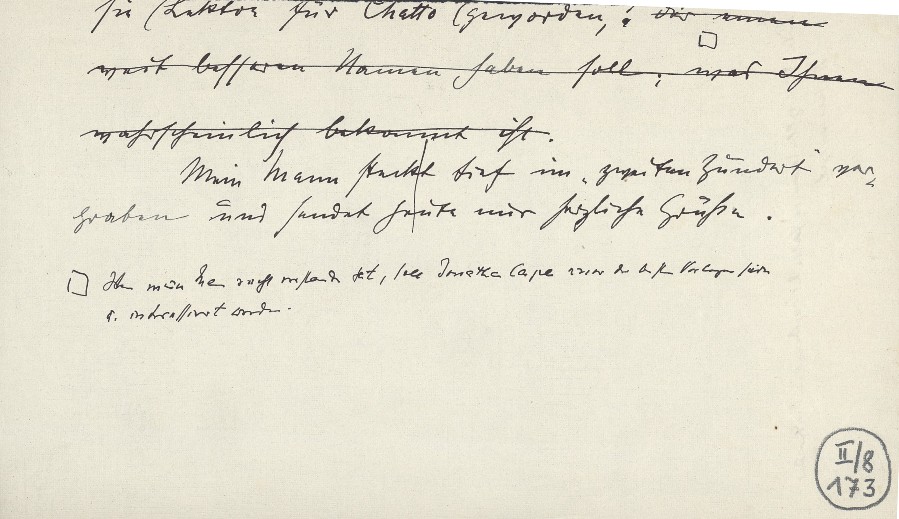 sie (Lektor für Chatto (geworden,) die einen
weit besseren Namen haben soll, was Ihnen
wahrscheinlich bekannt ist.
Mein Mann steckt tief im „zweiten Hundert" ver-
graben und sendet heute nur herzliche Grüße.
mein nicht hat, soll Jonathan Cape einer der besten Verleger sein
u. interessiert werden.
II/8
173